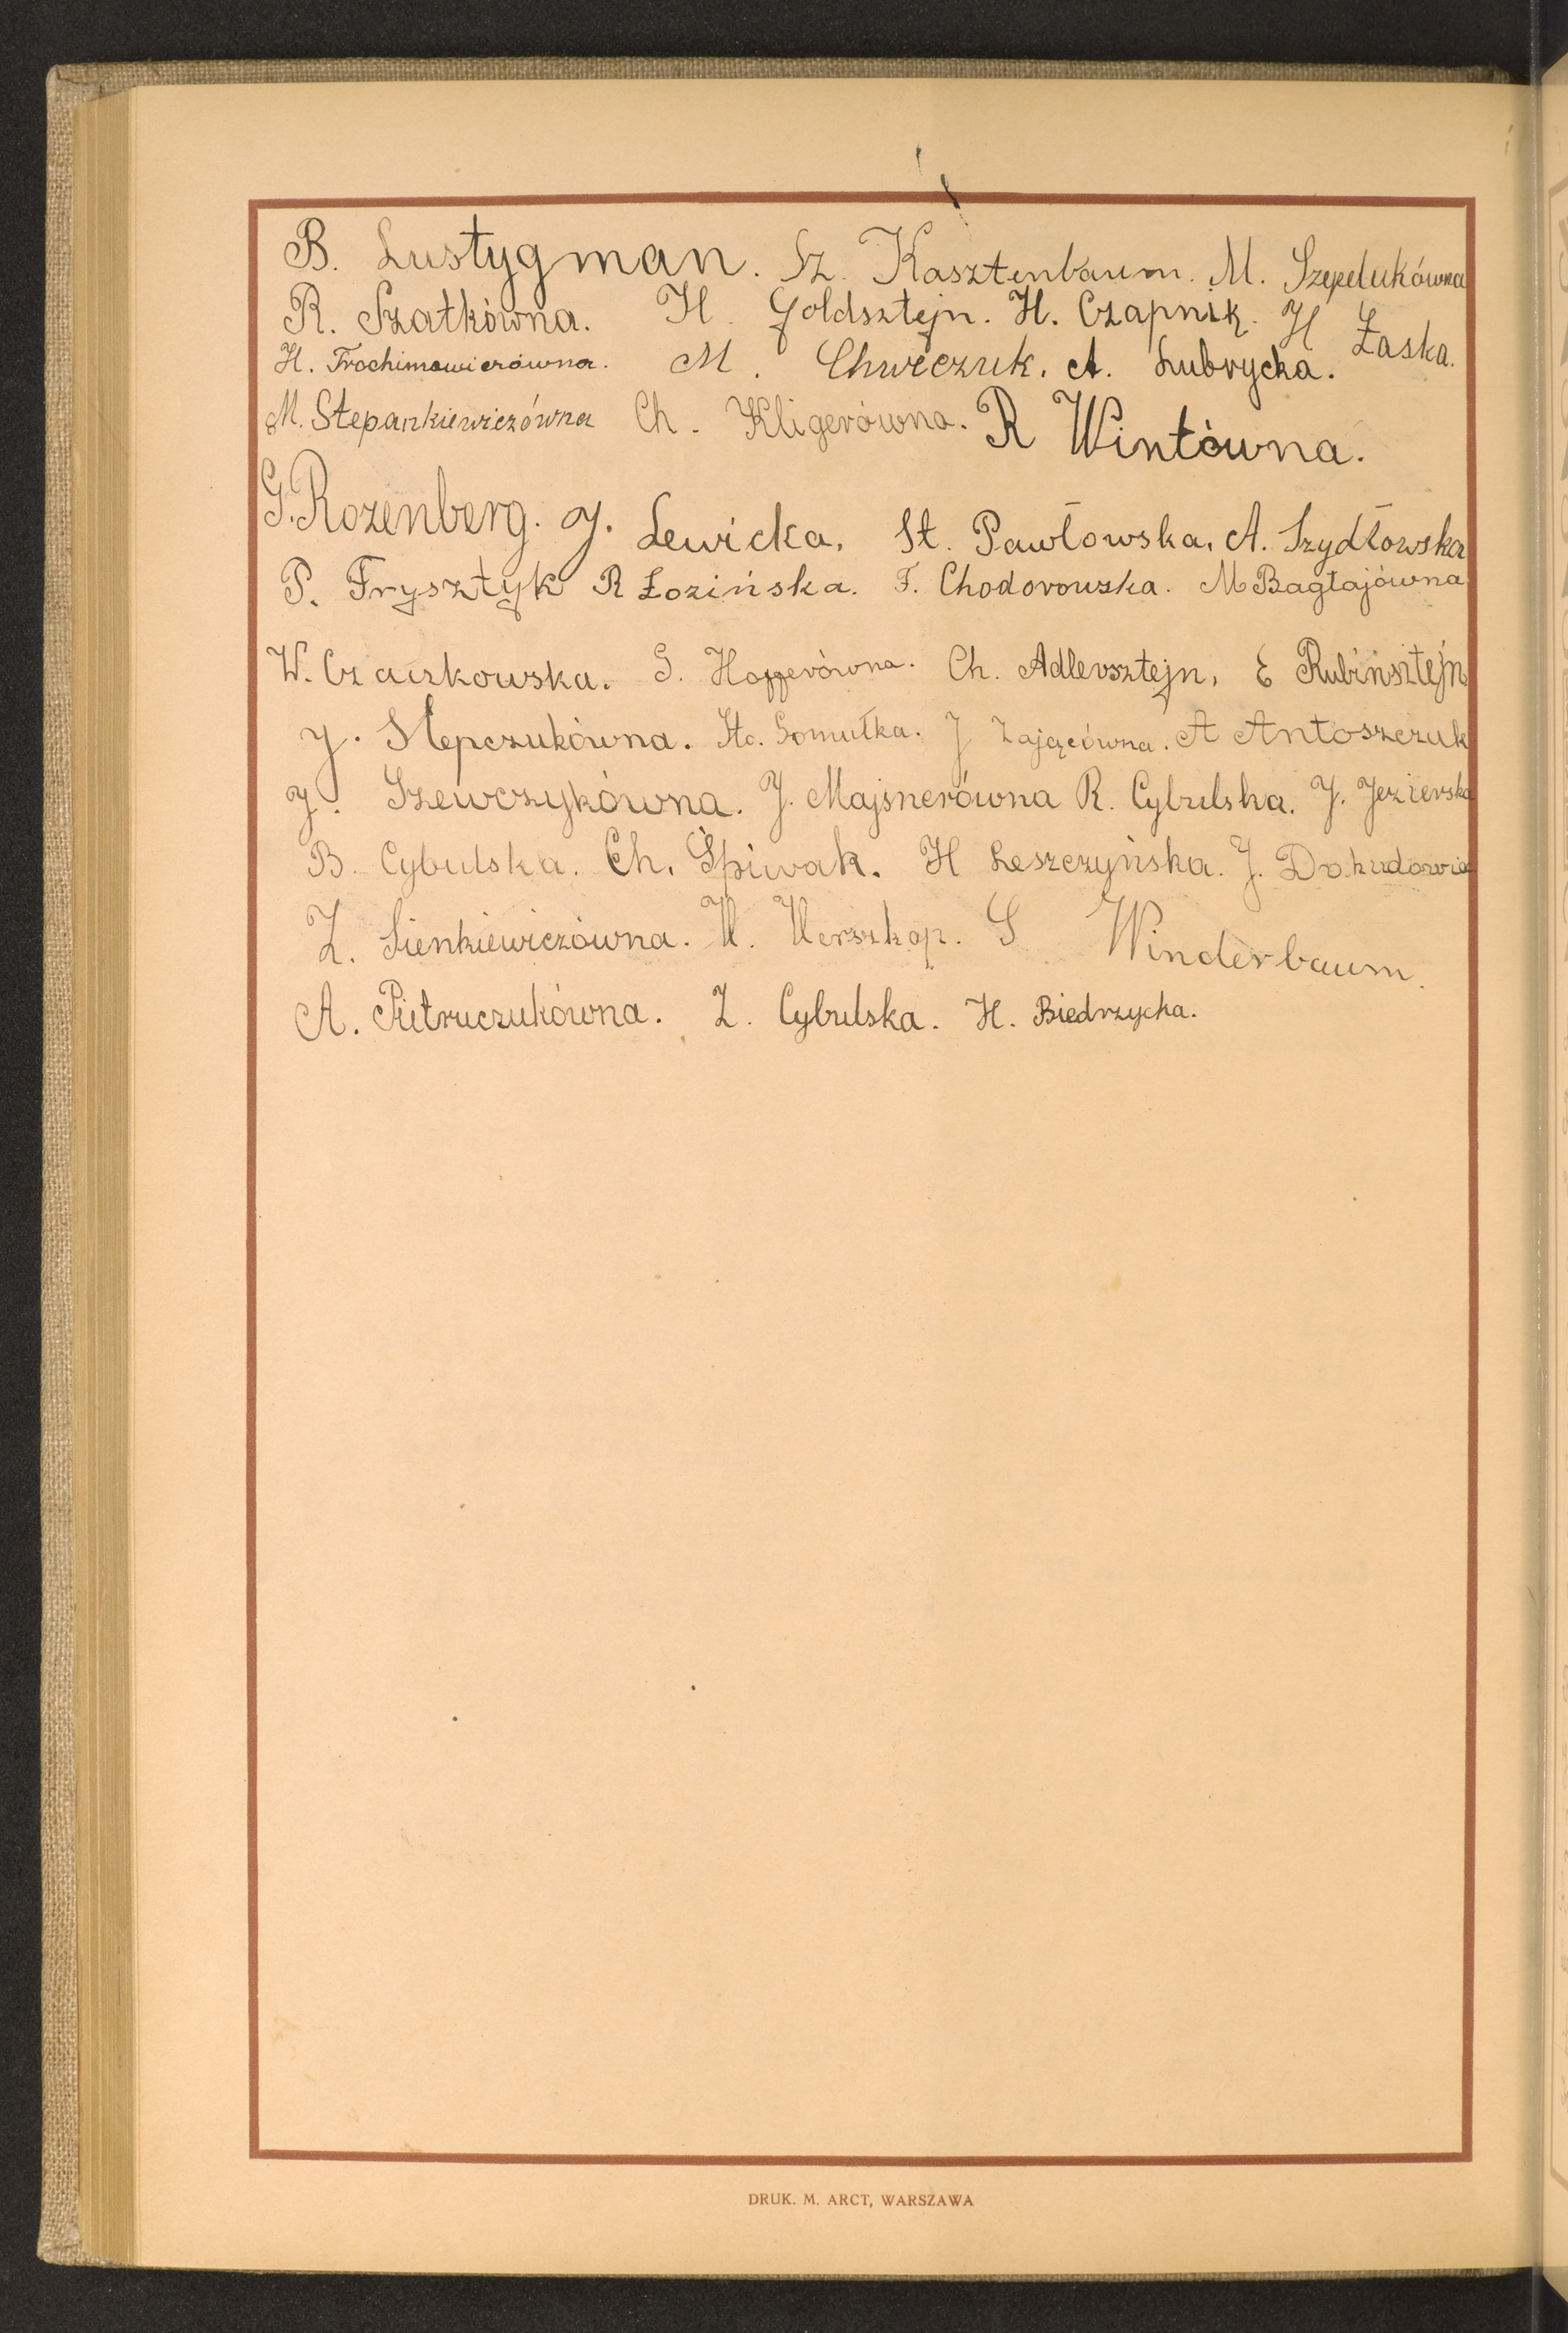 B. Lustygman. Sz. Kasztenbaum. M. Szepelukówna
R. Szatkówna. H. Goldsztejn. H. Czapnik. H Łaska.
H. Trochimowiczówna. M. Chweczuk. A. Lubrycka.
M. Stepankiewiczówna Ch. Kligerówna. R Wintówna.
G. Rozenberg. J. Lewicka, St. Pawłowska, A. Szydłowska
P. Frysztyk R Łozińska. F. Chodorowska. M Bagłajówna
W. Czaczkowska. S. Hofferówna. Ch. Adlersztejn, E Rubinsztejn
J. Stepczukówna. St. Gomułka. J Zającówna. A Antoszczuk
J. Szewczykówna. J. Majsnerówna R. Cybulska. J. Jezierska
B. Cybulska. Ch. Śpiwak. H Leszczyńska. J.
Z. Sienkiewiczówna. U. Uerszkop. S Winderbaum.
A. Pietruczukówna. Z. Cybulska. H. Biedrzycka.
DRUK. M. ARCT, WARSZAWA